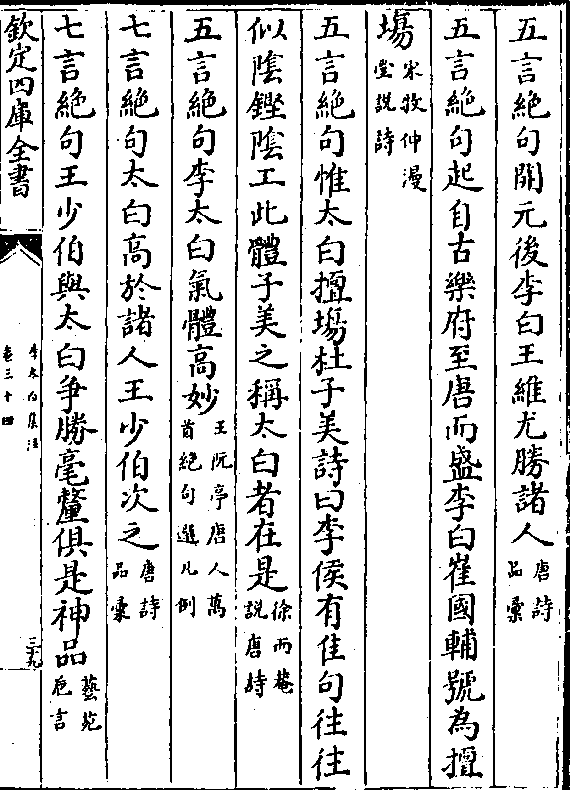 五言絶句開元後李白王維尤勝諸人唐詩品彙
五言絶句起自古樂府至唐而盛李白崔國輔號為擅
塲宋牧仲漫堂說詩
五言絶句惟太白擅塲杜子美詩曰李侯有佳句往往
似陰鏗陰工此體子美之稱太白者在是徐而菴說唐詩
五言絶句李太白氣體高妙王阮亭唐人萬首絶句選凡例
七言絶句太白高於諸人王少伯次之唐詩品彙
七言絶句王少伯與太白爭勝毫釐俱是神品藝苑巵言
欽定四庫全書
李太白集注
卷三十四
三九